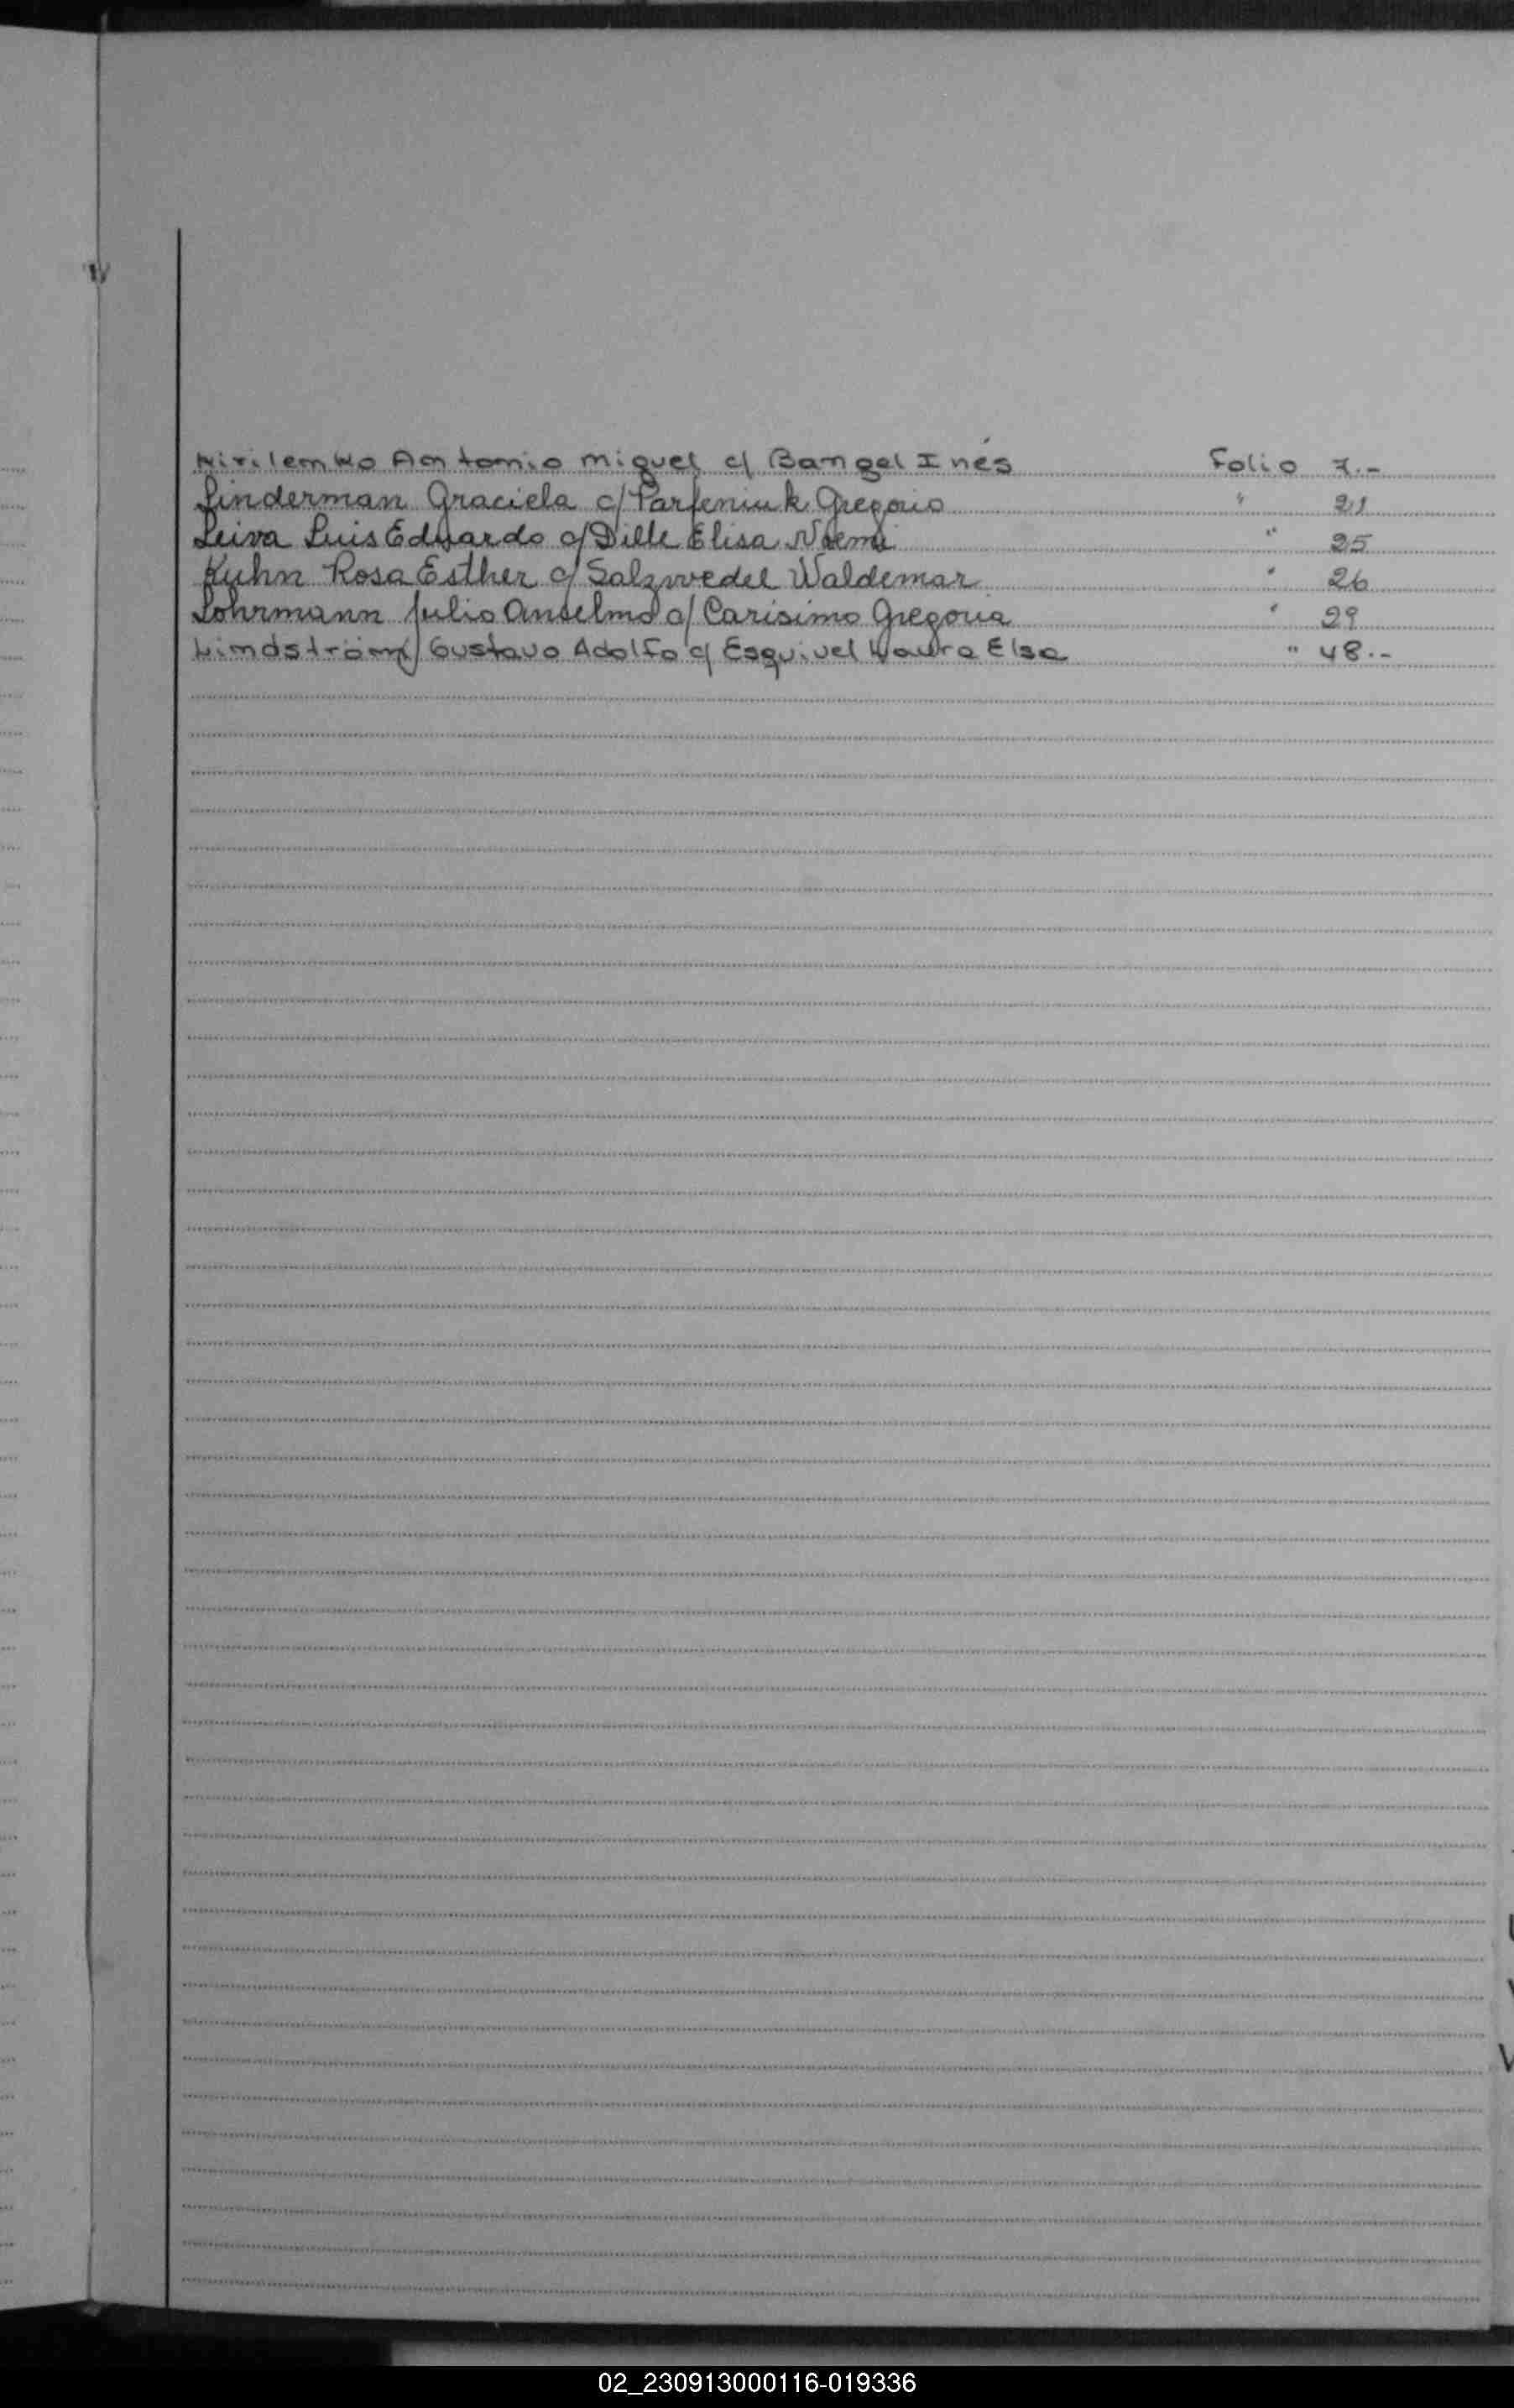 Kirilenko Antonio Miguel c/ Bangel Inés Folio 7.-
Linderman Graciela c/ Parfeniuk Gregorio " 21
Leiva Luis Eduardo c/ Dille Elisa Noemi " 25
Kuhn Rosa Esther c/ Salzwedel Waldemar " 26
Lohrmann Julio Anselmo c/ Carisimo Gregoria " 29
Lindström Gustavo Adolfo c/ Esquivel Laura Elsa " 48.-
02_230913000116-019336